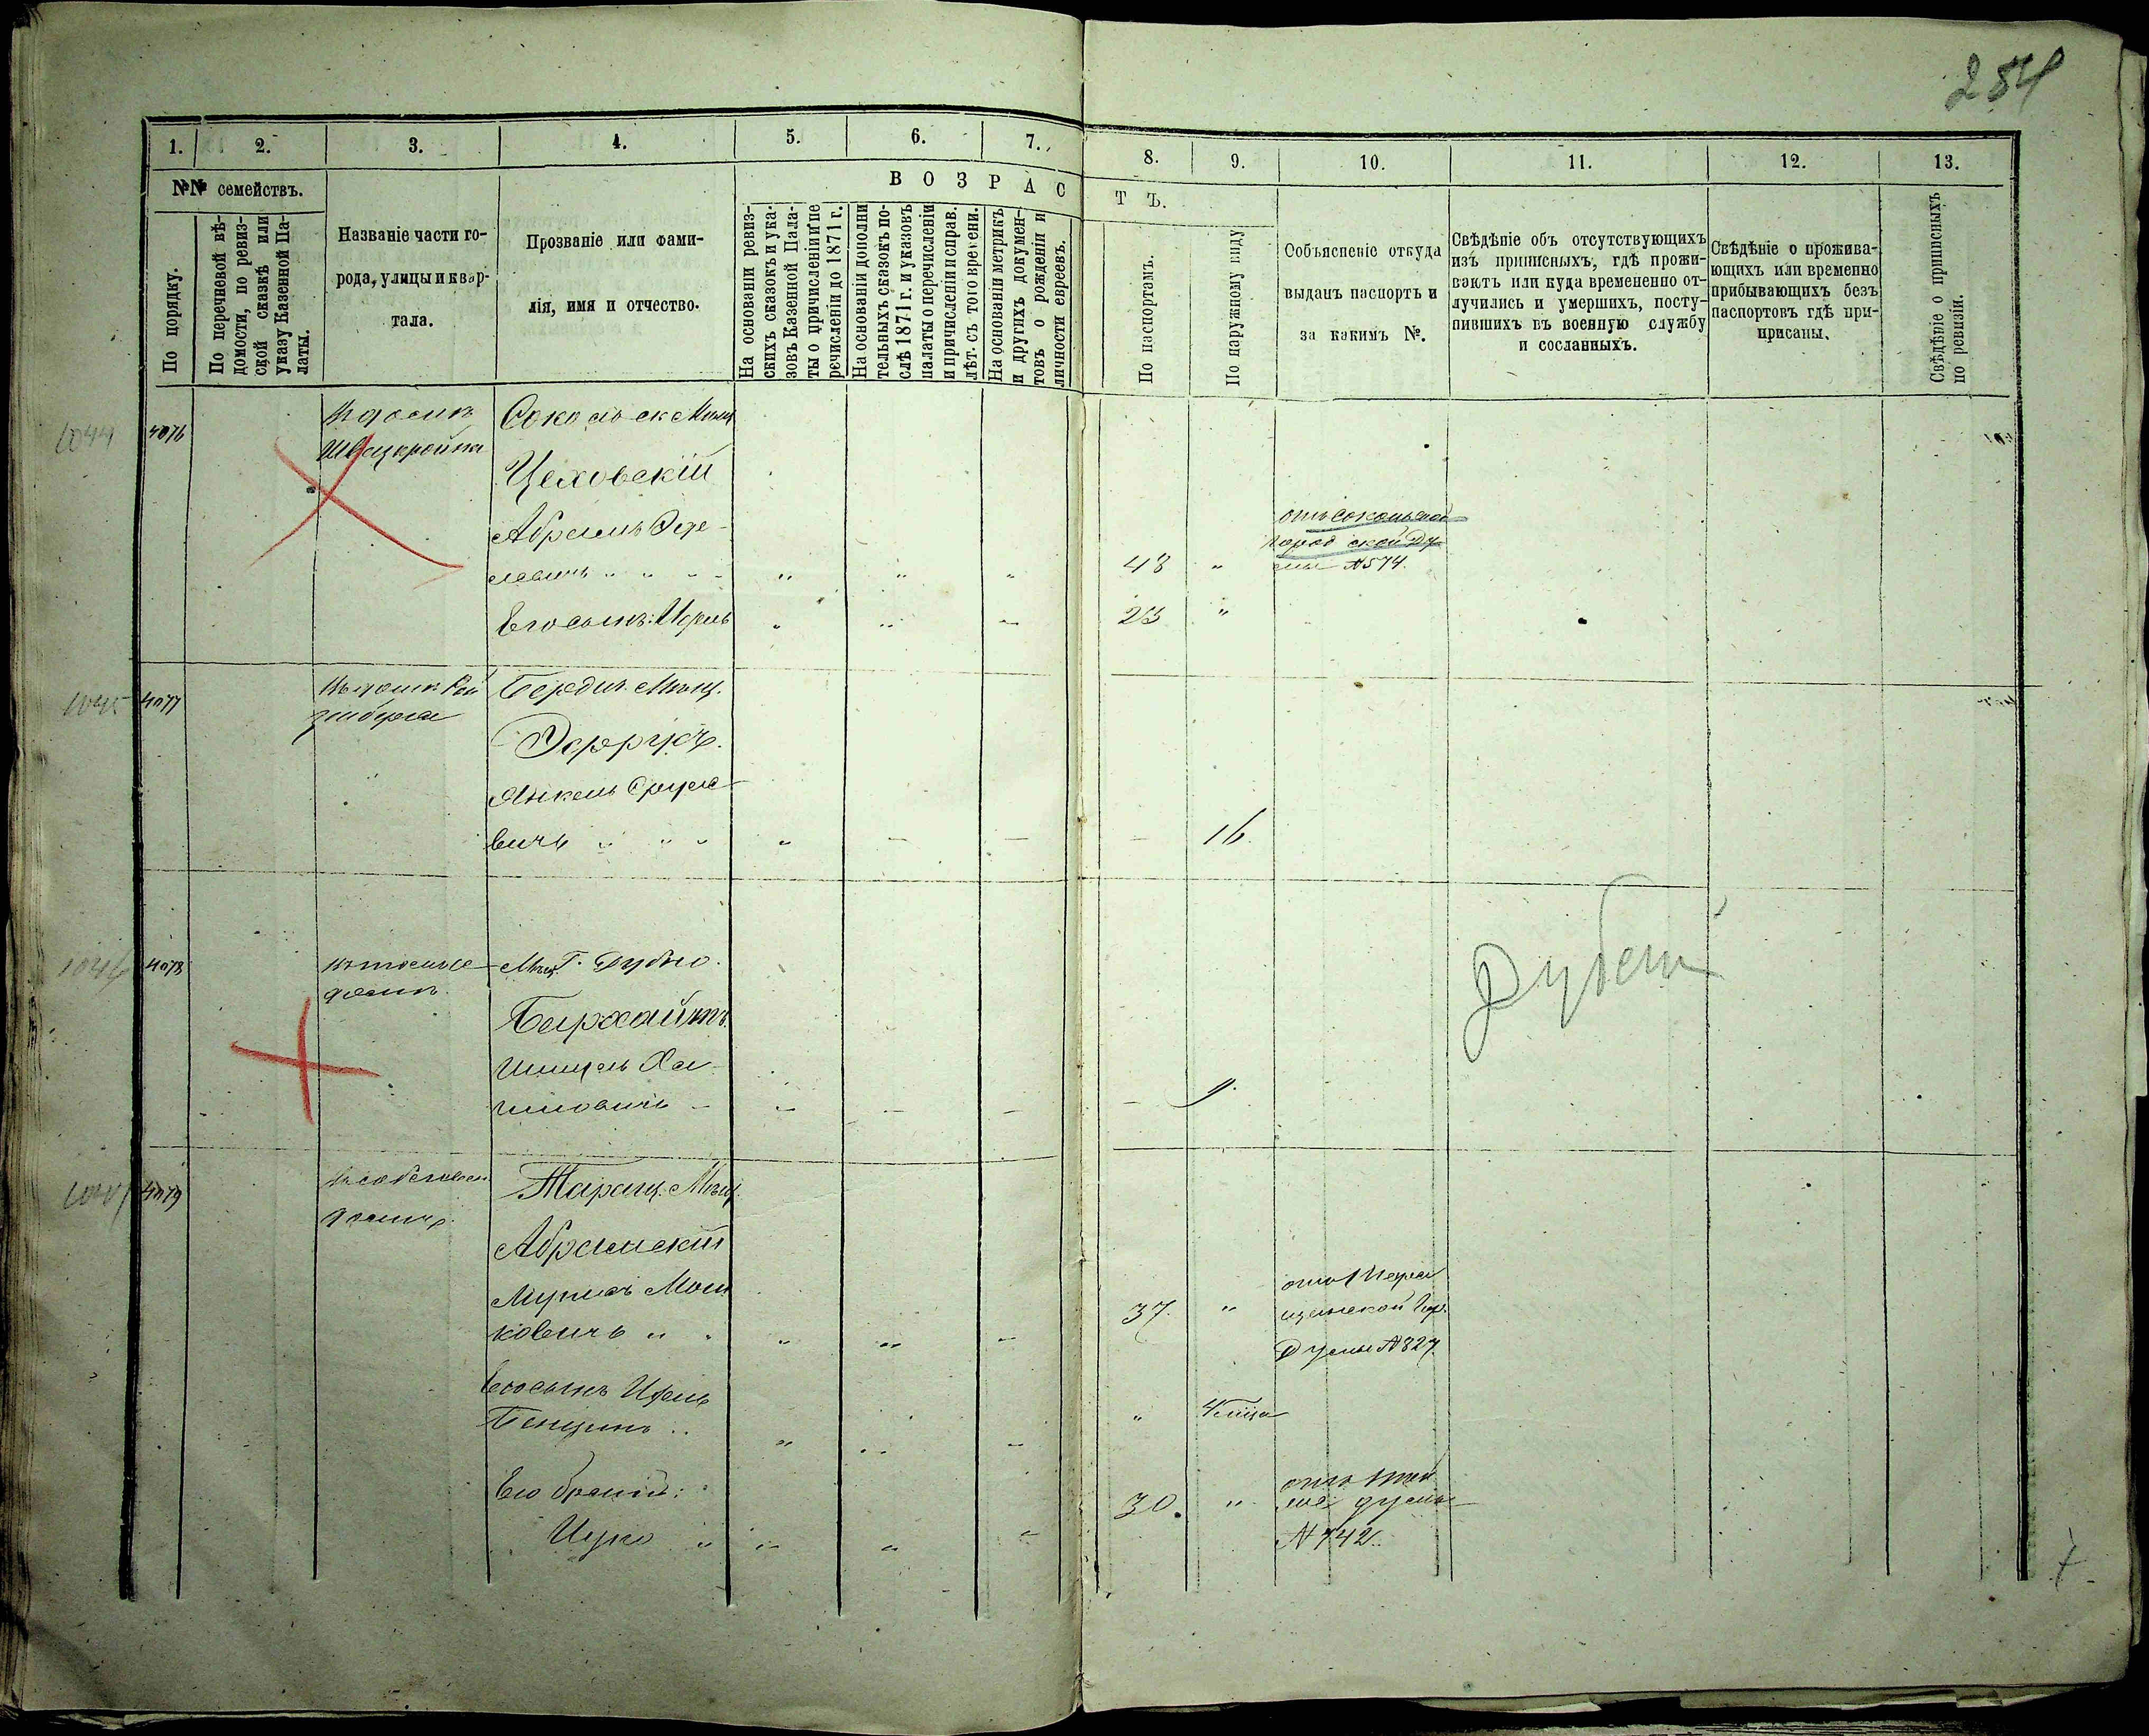 254
1. 2. 3. 4. 5. 6. 7. 8. 9. 10. 11. 12. 13.
№№ семействъ.
По порядку.
По перечневой вѣ-
домости, по ревиз-
ской сказкѣ или
указу Казенной Па-
латы.
Названіе части го-
рода, улицы и квар-
тала.
Прозваніе или фами-
лія, имя и отчество.
ВОЗРАСТЪ.
На основаніи ревиз-
скихъ сказокъ и ука-
зовъ Казенной Пала-
ты о причисленіи и пе
речисленіи до 1871 г.
На основаніи дополни
тельныхъ сказокъ по-
слѣ 1871 г. и указовъ
палаты о перечисленіи
и причисленіи и справ.
лѣт. съ того времени.
На основаніи метрикъ
и другихъ докумен-
товъ о рожденіи и
личности евреевъ.
По паспортамъ.
По наружному виду
Ообъясненіе откуда
выданъ паспортъ и
за какимъ №.
Свѣдѣніе объ отсутствующихъ
изъ приписныхъ, гдѣ прожи-
ваютъ или куда временно от-
лучились и умершихъ, посту-
пившихъ въ военную службу
и сосланныхъ.
Свѣдѣніе о прожива-
ющихъ или временно
прибывающихъ безъ
паспортовъ гдѣ при-
писаны.
Свѣдѣніе о приписныхъ
по ревизіи.
1044 4076
Сокольск Мѣщ
Цеховскій
Абрамъ
48
отъ Сокольской
Город ской Ду
мы №574.
Его сынъ: Исрель
23
1045 4077
Бердич. Мѣщ.
Эфрусъ.
Янкель Сруле
вичъ 16.
1046 4078
въ томъ же
домѣ.
Мѣщ. Г. Дубно.
9.
Дубен
4079
домѣ.
Таращ. Мѣщ.
Абрамскій
Мош
ковичъ
37.
отъ Тара
щанской Гор.
Думы №827.
Его сынъ
4 мѣца
Его братъ:
Ицко
30.
отъ той
же думы
№742.